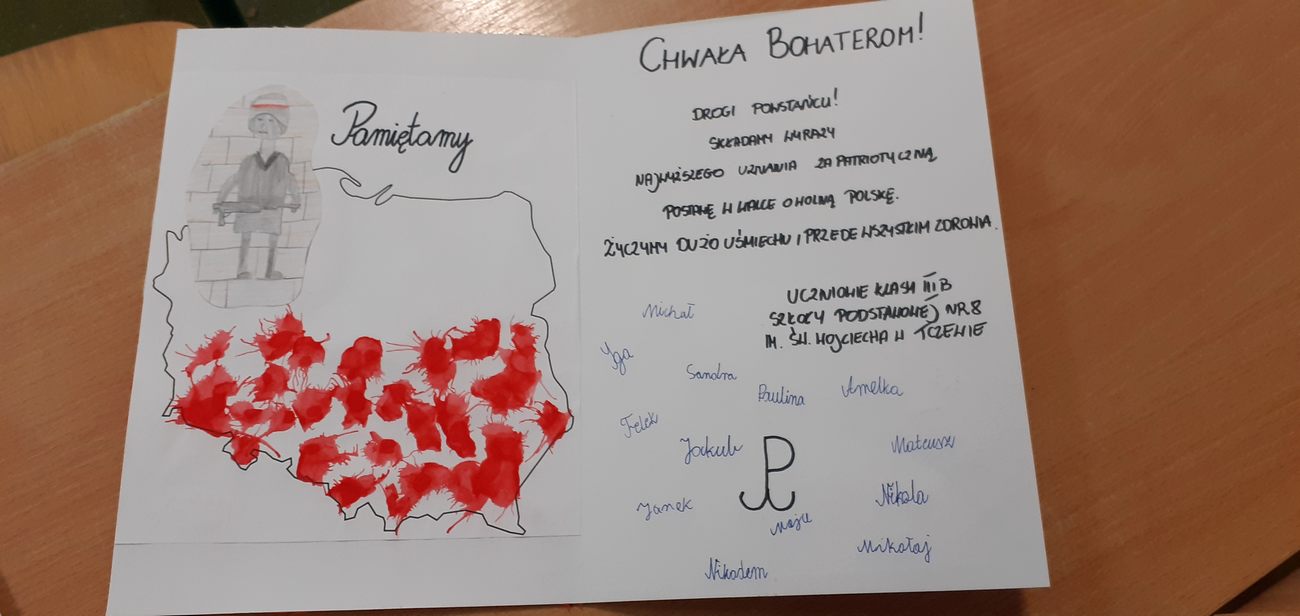 Pamiętamy
CHWAŁA BOHATEROM!
DROGI POWSTAŃCU!
SKŁADAMY WYRAZY
NAJWYŻSZEGO UZNANIA ZA PATRIOTYCZNĄ
POSTAWĘ W WALCE O WOLNĄ POLSKĘ.
ŻYCZYMY DUŻO UŚMIECHU I PRZEDE WSZYSTKIM ZDROWIA.
UCZNIOWIE KLASY III B
SZKOŁY PODSTAWOWEJ NR 8
IM. ŚW. WOJCIECHA W TCZEWIE
Michał
Iga
Sandra
Paulina
Amelka
Felek
Jakub
Mateusz
Janek
Nikola
Mikołaj
Nikodem